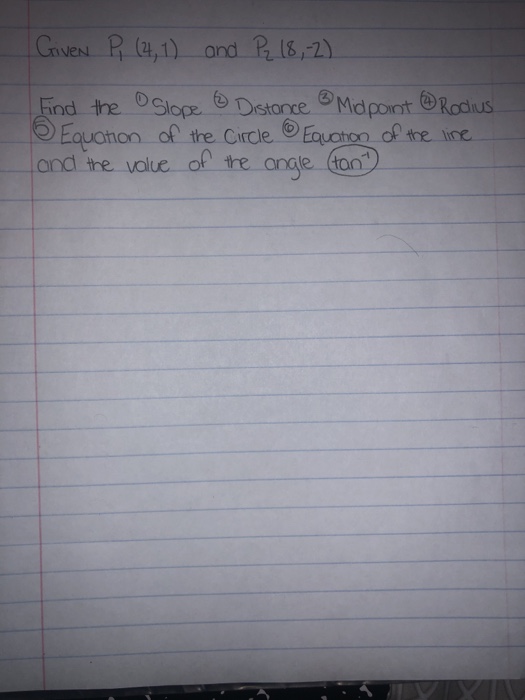 Given P₁ (4,1) and P₂ (8,-2)
Find the ① Slope ② Distance ③ Midpoint ④ Radius
⑤ Equation of the Circle ⑥ Equation of the line
and the value of the angle tan⁻¹